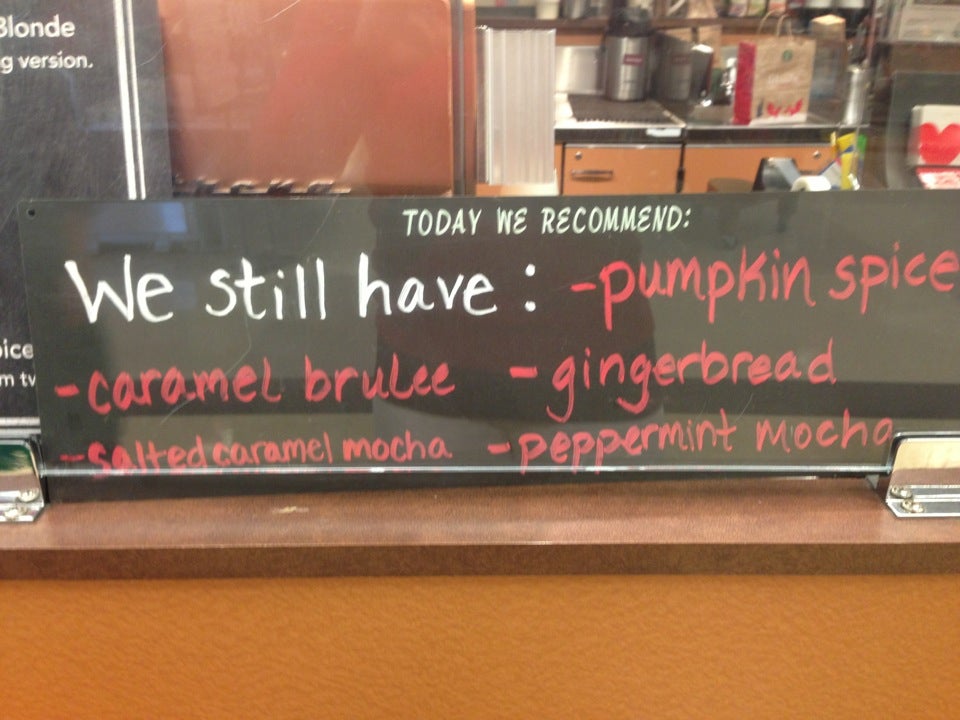 Blonde
g version.
TODAY WE RECOMMEND:
We still have : -pumpkin spice
-caramel brulee -gingerbread
-salted caramel mocha -peppermint mocha